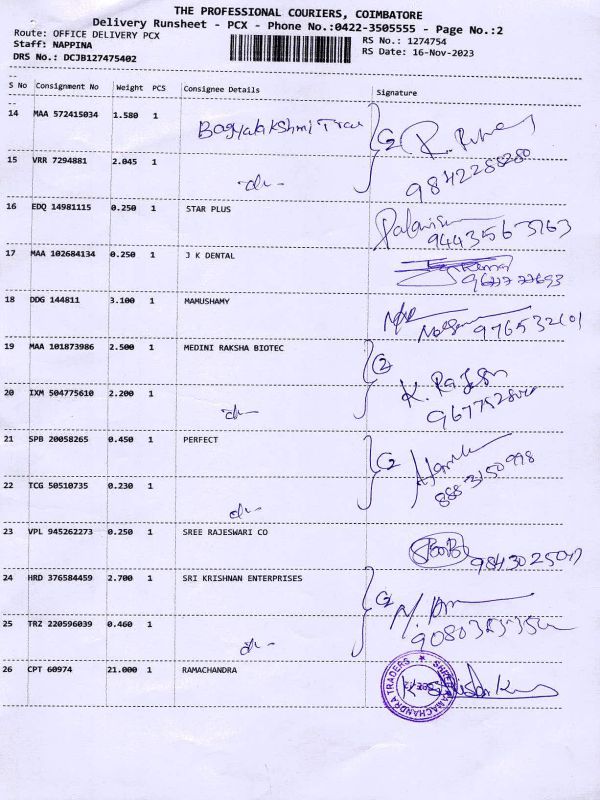 THE PROFESSIONAL COURIERS, COIMBATORE
Delivery Runsheet - PCX - Phone No.:0422-3505555 - Page No.:2
Route: OFFICE DELIVERY PCX
RS No.: 1274754
Staff: NAPPINA
RS Date: 16-Nov-2023
DRS No.: DCJB127475402
S No Consignment No Weight PCS Consignee Details Signature
14 MAA 572415034 1.580 1 Bagyalakshmi
15 VRR 7294881 2.045 1 -do-
9842258250
16 EDQ 14981115 0.250 1 STAR PLUS
9443563763
17 MAA 102684134 0.250 1 J K DENTAL
18 DDG 144811 3.100 1 MAMUSHAMY
976532101
19 MAA 101873986 2.500 1 MEDINI RAKSHA BIOTEC
20 IXM 504775610 2.200 1 -do-
21 SPB 20058265 0.450 1 PERFECT
22 TCG 50510735 0.230 1 -do-
8883150998
23 VPL 945262273 0.250 1 SREE RAJESWARI CO
24 HRD 376584459 2.700 1 SRI KRISHNAN ENTERPRISES
25 TRZ 220596039 0.460 1 -do-
26 CPT 60974 21.000 1 RAMACHANDRA
RAMACHANDRA TRADERS